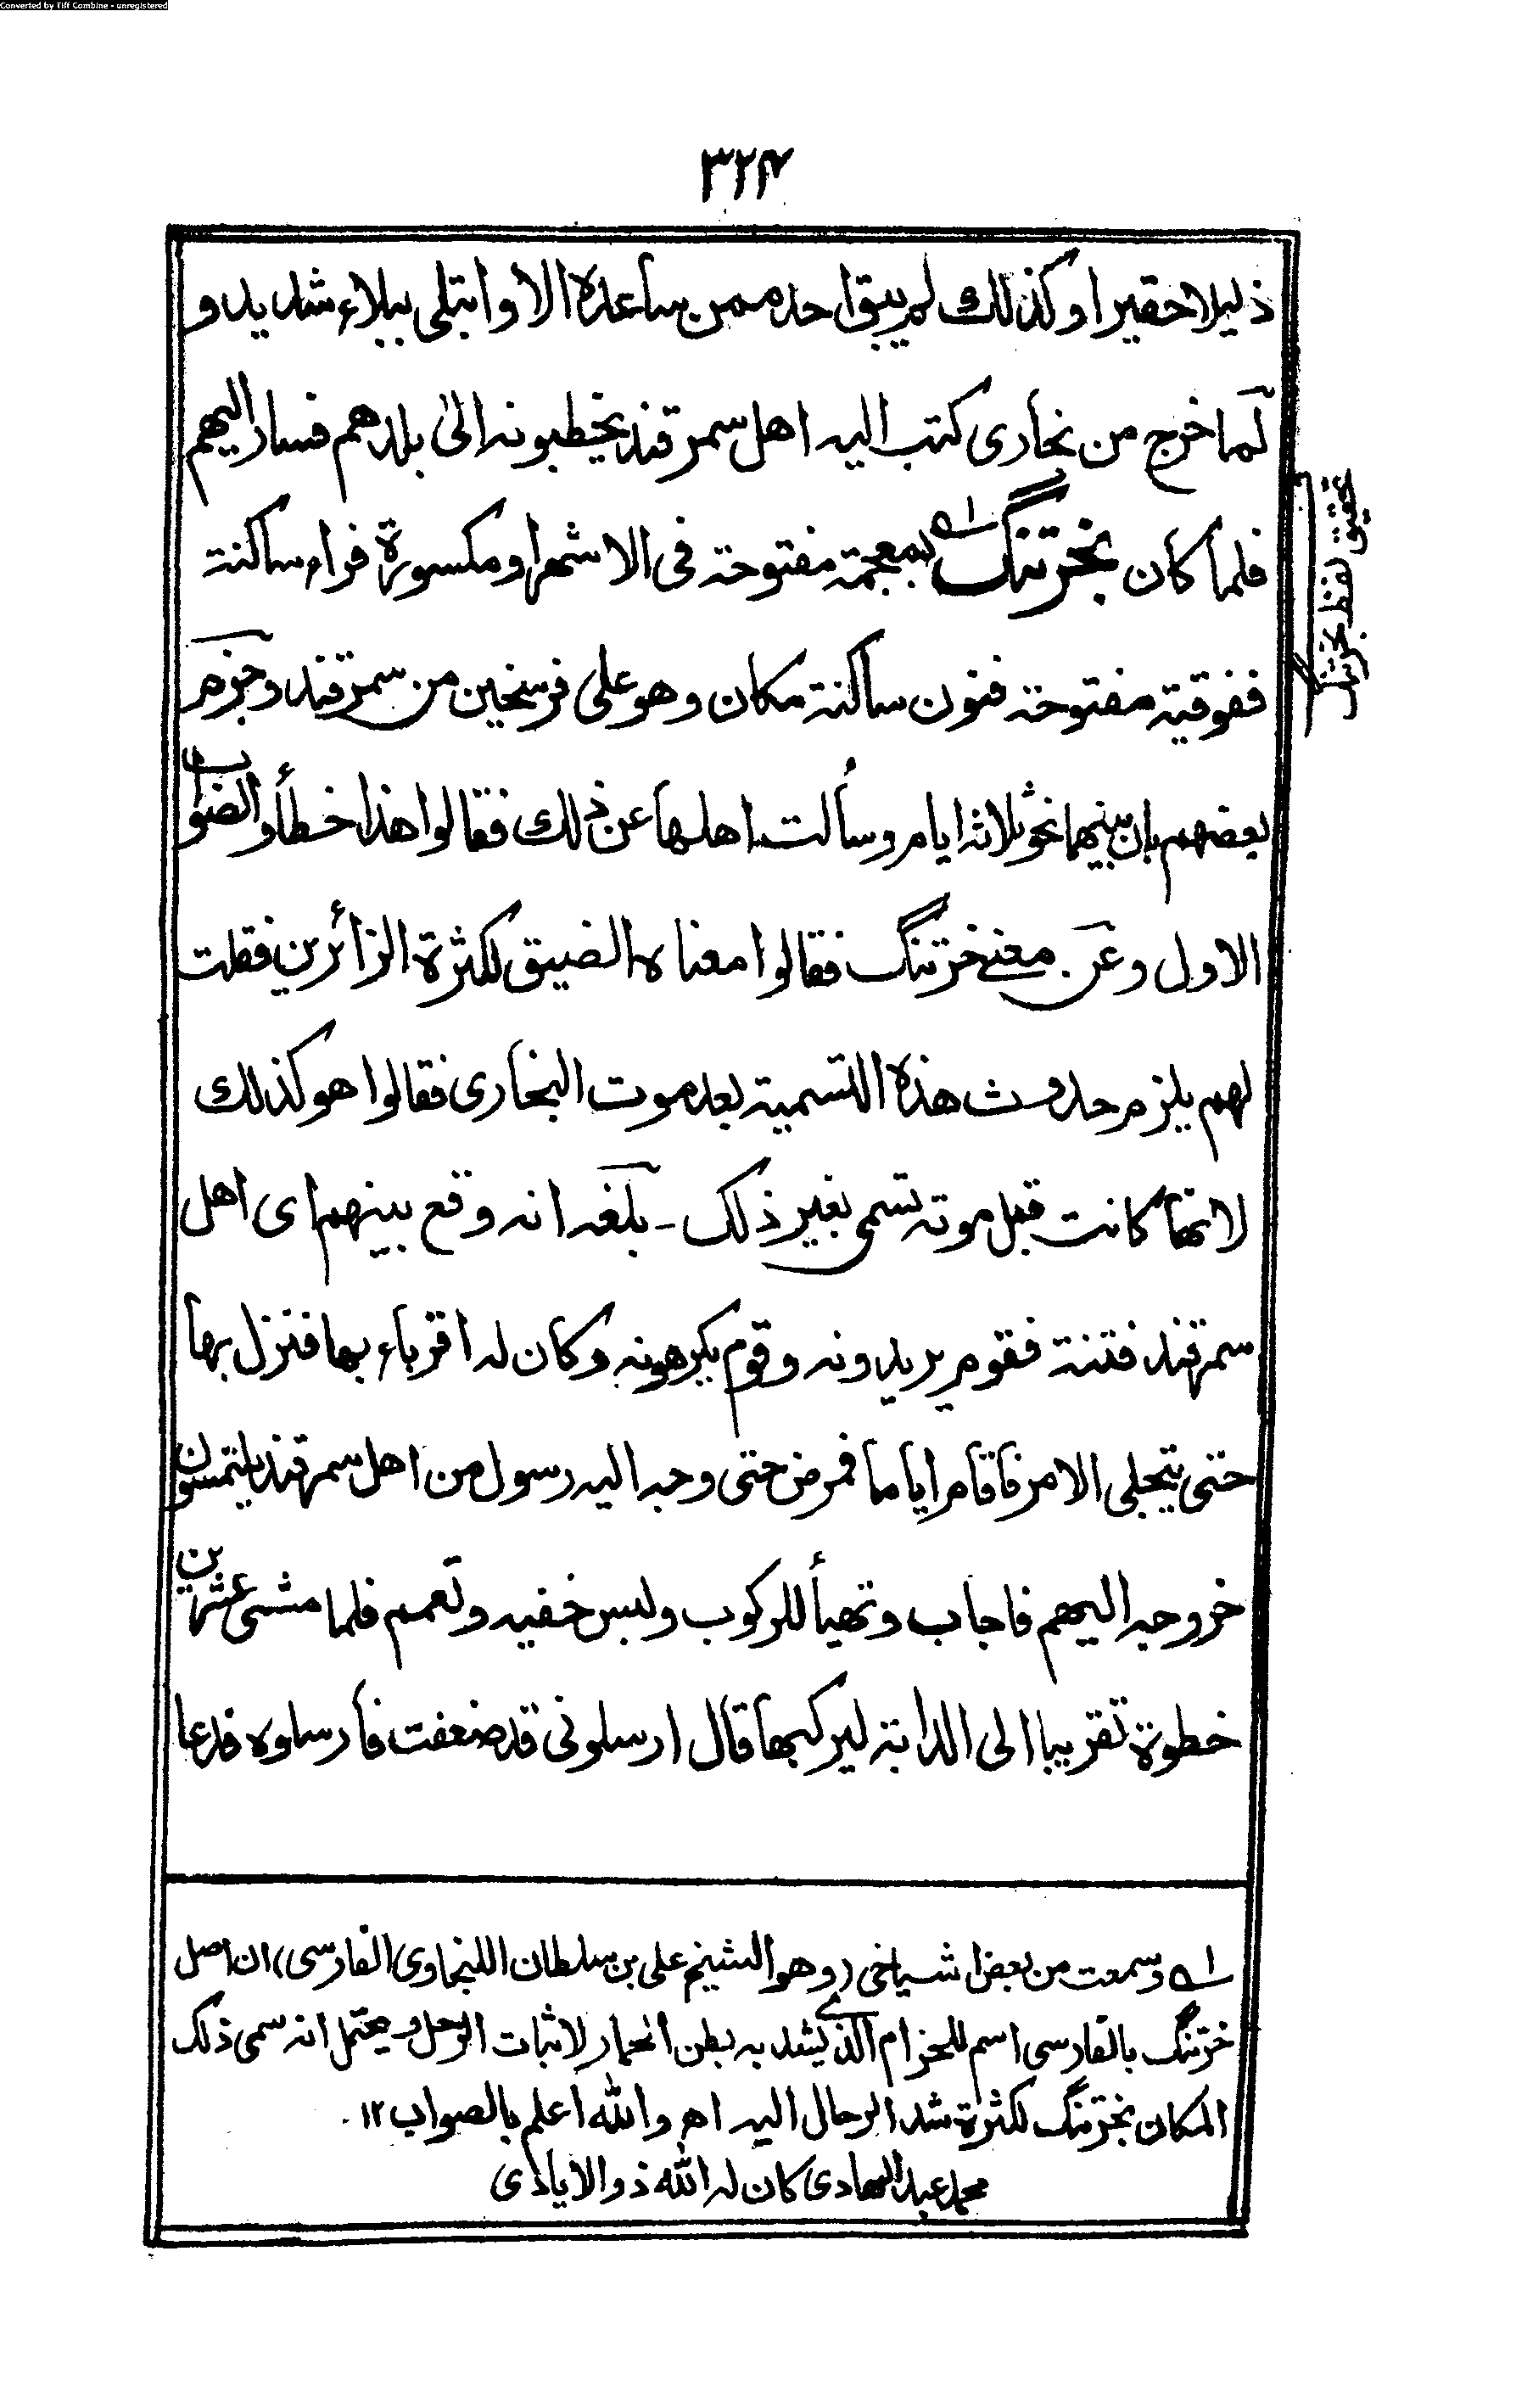 Converted by Tiff Combine - unregistered
٣٢٤
ذليلا حقيرا وكذلك لم يبق احد ممن ساعده الا وابتلى ببلاء شديد و
لما خرج من بخارى كتب اليه اهل سمرقند يخطبونه الى بلدهم فسار اليهم
فلما كان بخرتنگ ا؎ بمعجمة مفتوحة فى الاشهر او مكسورة فراء ساكنة
ففوقية مفتوحة فنون ساكنة مكان وهو على فرسخين من سمرقند وجزم
بعضهم بان بينهما نحو ثلاثة ايام وسألت اهلها عن ذلك فقالوا هذا خطأ والصواب
الاول وعن معنے خرتنگ فقالوا معناه الضيق لكثرة الزائرين فقلت
لهم يلزم حدوث هذه التسمية بعد موت البخارى فقالوا هو كذلك
لانها كانت قبل موته تسمى بغير ذلك - بلغه انه وقع بينهم اى اهل
سمرقند فتنة فقوم يريدونه وقوم يكرهونه وكان له اقرباء بها فنزل بها
حتى ينجلى الامر فاقام اياما فمرض حتى وجه اليه رسول من اهل سمرقند يلتمسون
خروجه اليهم فاجاب وتهيأ للركوب ولبس خفيه وتعمم فلما مشى عشرين
خطوة تقريبا الى الدابة ليركبها قال ارسلونى قد ضعفت فأرسلوه فدعا
تحقيق لفظ بخرتنگ
ا؎ وسمعت من بعض اشياخى (وهو الشيخ على بن سلطان اللنجاوى الفارسى) ان اصل
خرتنگ بالفارسى اسم للحزام الذے يشد به بطن الحمار لاثبات الرحل ويحتمل انه سمى ذلك
المكان بخرتنگ لكثرة شد الرحال اليه اھ والله اعلم بالصواب ١٢.
محمد عبد الهادى كان له الله ذو الايادى